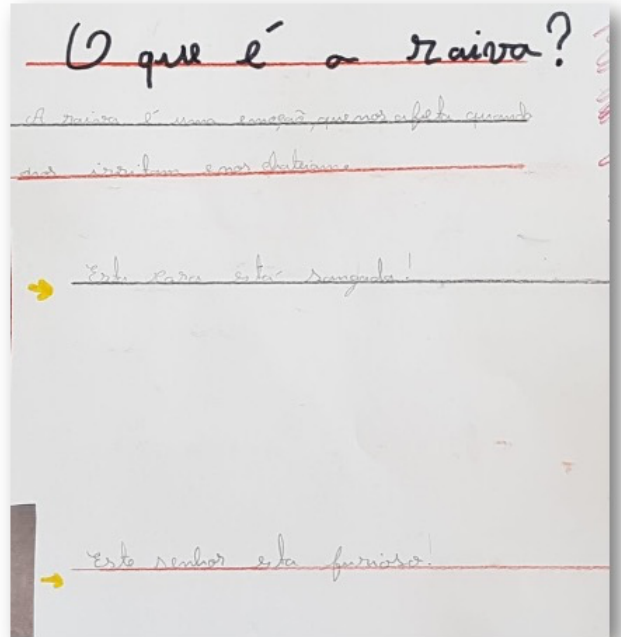 O que é a raiva?
A raiva é uma emoção, que nos afeta quando
nos irritam e nos chateiam.
Esta cara está zangada!
Este senhor esta furioso.